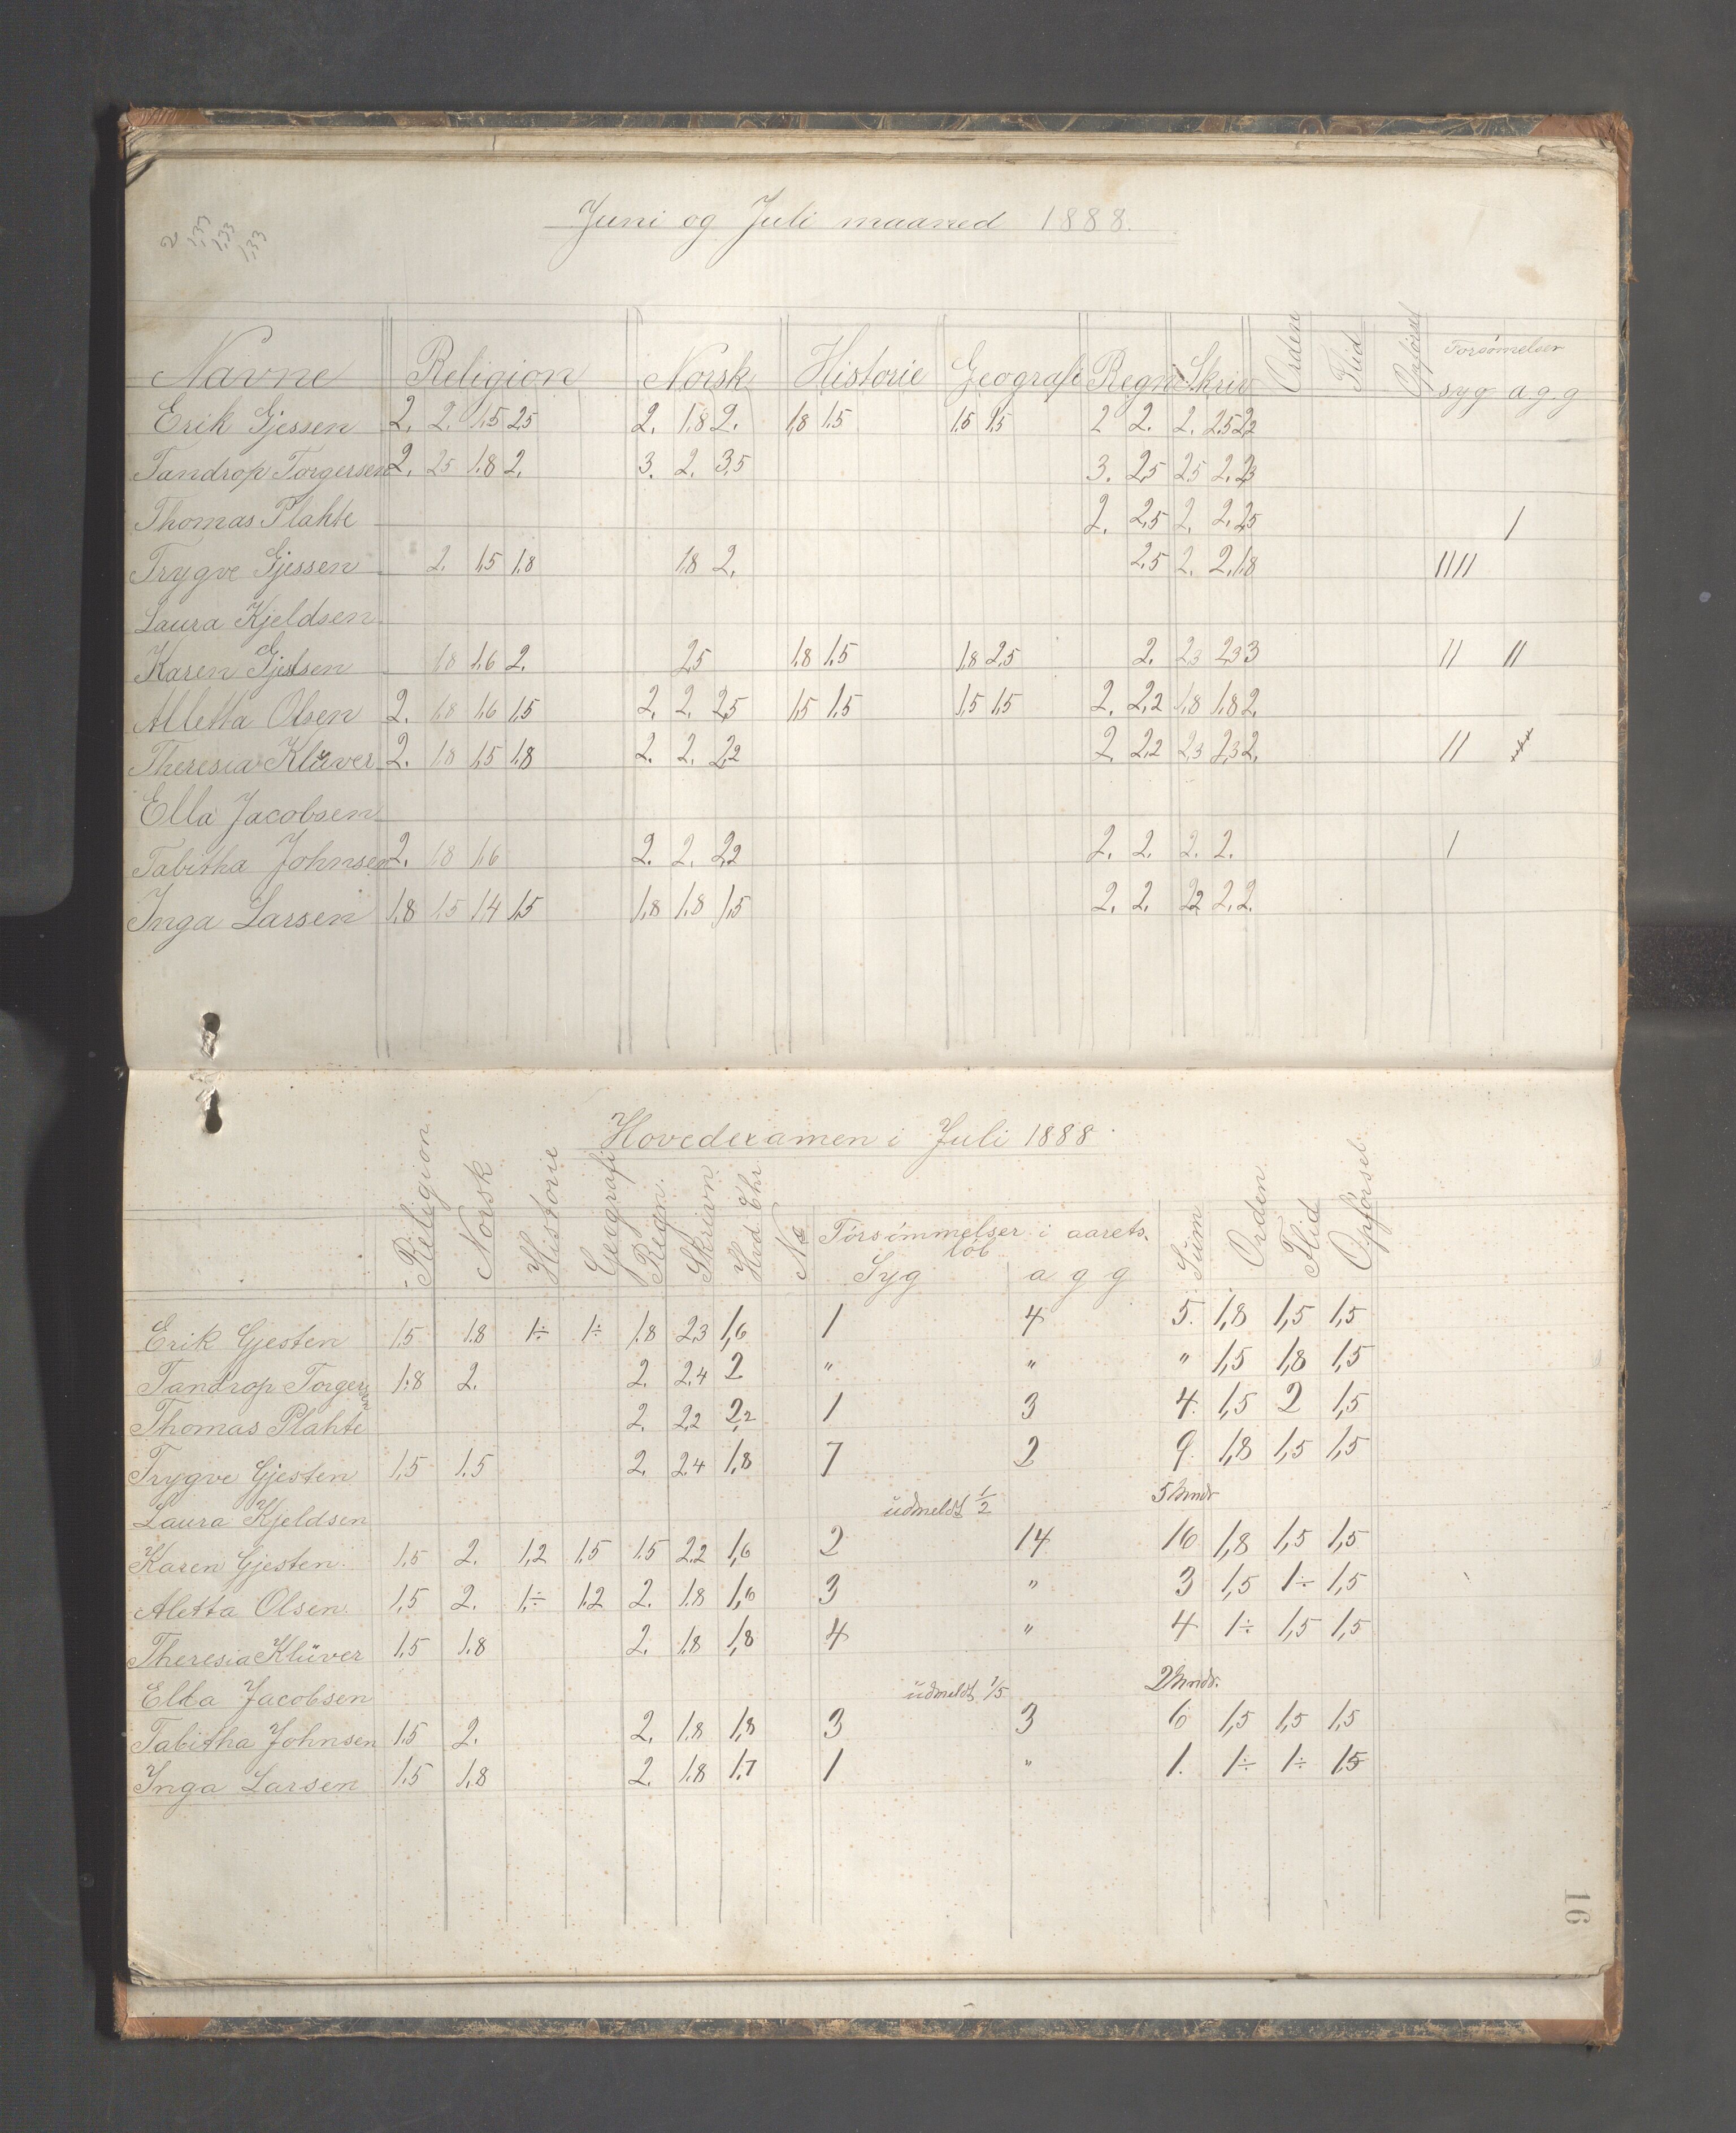 Juni og Juli maaned 1888.
2 1.33 1.33 1.33
Forsømelser
Navne Religion Norsk Historie Geografi Regn Skriv Orden Flid Opførsel syg a g g
Erik Gjessen 2. 2. 1.5 2.5 2. 1.8 2. 1.8 1.5 1.5 1.5 2 2. 2. 2.5 2.2
Tandrop Torgersen 2. 2.5 1.8 2. 3. 2. 3.5 3. 2.5 2.5 2. 2.3
Thomas Plahte 2. 2.5 2. 2. 2.5 1
Trygve Gjessen 2. 1.5 1.8 1.8 2. 2.5 2. 2. 1.8 1111
Laura Kjeldsen
Karen Gjessen 1.8 1.6 2. 2.5 1.8 1.5 1.8 2.5 2. 2.3 2.3 3 11 11
Alletta Olsen 2. 1.8 1.6 1.5 2. 2. 2.5 1.5 1.5 1.5 1.5 2. 2.2 1.8 1.8 2.
Theresia Klüver 2. 1.8 1.5 1.8 2. 2. 2.2 2. 2.2 2.3 2.3 2. 11
Ella Jacobsen
Tabitha Johnsen 2. 1.8 1.6 2. 2. 2.2 2. 2. 2. 2. 1
Inga Larsen 1.8 1.5 1.4 1.5 1.8 1.8 1.5 2. 2. 2.2 2. 2.
Hovedexamen i Juli 1888.
Religion Norsk Historie Geografi Regn. Skrivn. Hvd Chr No Försömmelser i aarets löb Sum Orden Flid Opførsel
Syg a g g
Erik Gjesten 1.5 1.8 1÷ 1÷ 1.8 2.3 1,6 1 4 5. 1,8 1,5 1,5
Tandrop Torgersen 1.8 2. 2. 2.4 2 " " " 1,5 1,8 1,5
Thomas Plahte 2. 2.2 2,2 1 3 4. 1,5 2 1,5
Trygve Gjesten 1.5 1.5 2. 2.4 1,8 7 2 9. 1,8 1,5 1,5
Laura Kjeldsen üdmeldt 1/2 5 hmdr
Karen Gjesten 1.5 2. 1,2 1,5 1.5 2.2 1,6 2 14 16 1,8 1,5 1,5
Aletta Olsen. 1,5 2. 1.÷ 1.2 2. 1.8 1,6 3 " 3 1,5 1÷ 1,5
Theresia Klüver 1.5 1.8 2. 1.8 1,8 4 " 4 1÷ 1,5 1,5
Ella Jacobsen üdmeldt 1/5 2 hmdr.
Tabitha Johnsen 1.5 2. 2. 1.8 1,8 3 3 6 1,5 1,5 1,5
Inga Larsen 1.5 1.8 2. 1.8 1.7 1 " 1. 1÷ 1÷ 1.5
16